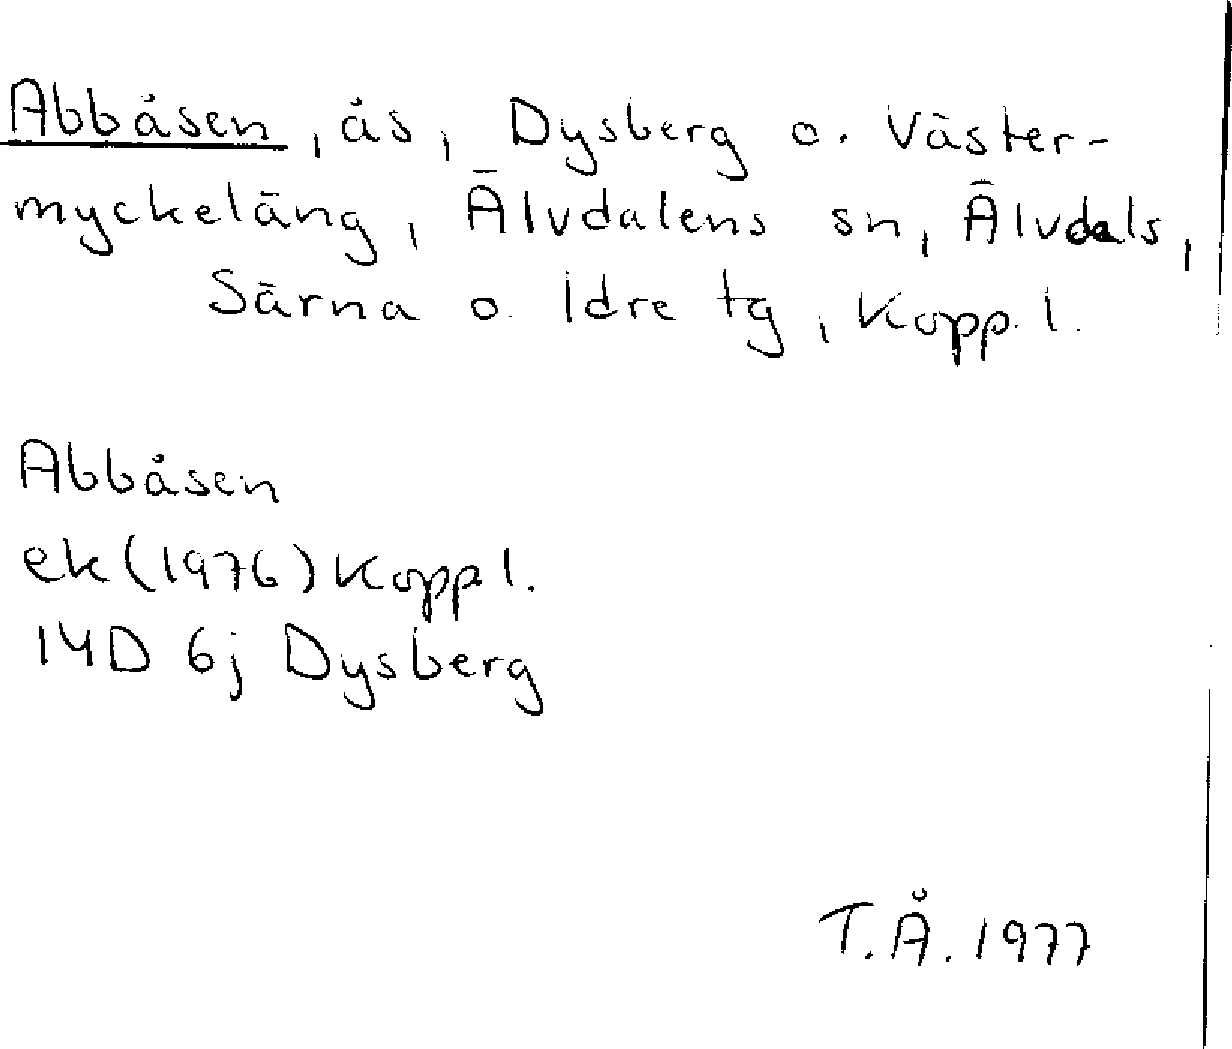 Abbåsen, ås, Dysberg o. Väster-
myckeläng, Älvdalens sn, Älvdals,
Särna o. Idre tg, Kopp. l.
Abbåsen
ek (1976) Kopp l.
14D 6j Dysberg
T.Å. 1977